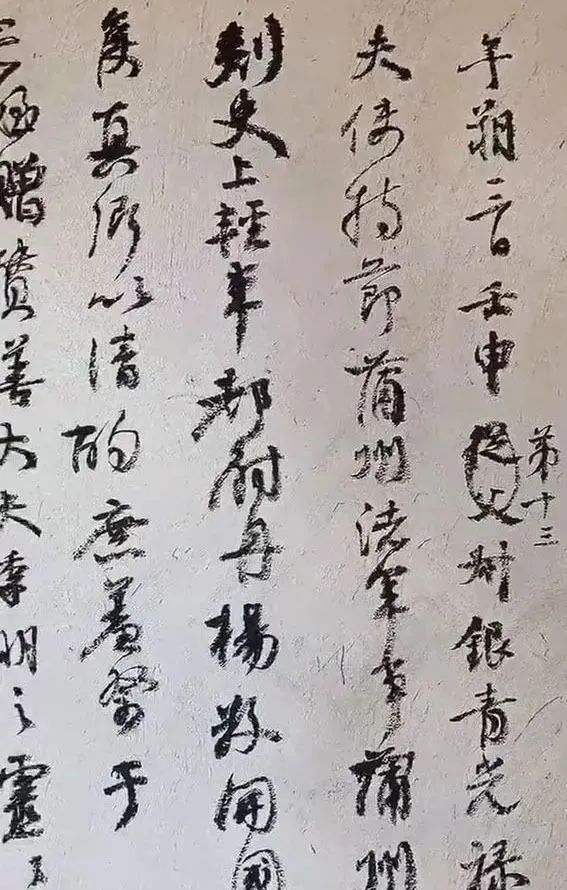 午朔三日壬申從父叔銀青光祿
第十三
夫使持節蒲州諸軍事蒲州
刺史上輕車都尉丹楊縣開國
侯真卿以清酌庶羞祭于
亡姪贈贊善大夫季明之靈